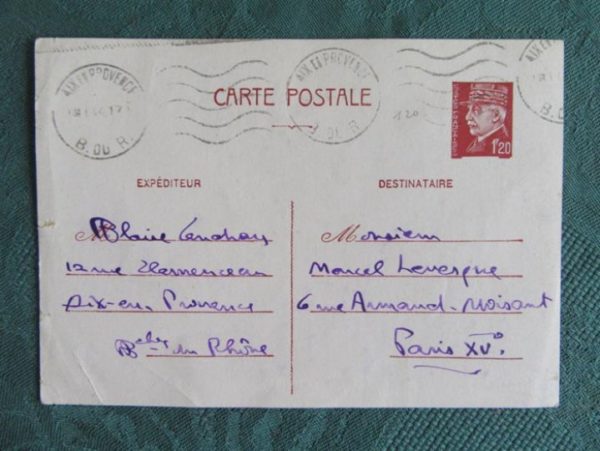 AIX EN PROVENCE
B. DU R.
AIX EN PROVENCE
B. DU R.
AIX EN PROVENCE
B. DU R.
CARTE POSTALE
120
1f20
EXPÉDITEUR
M Blaise Cendrars
12 rue Clemenceau
Aix-en-Provence
Bches du Rhône
DESTINATAIRE
Monsieur
Marcel Levesque
6 rue Armand-Moisant
Paris XVº.